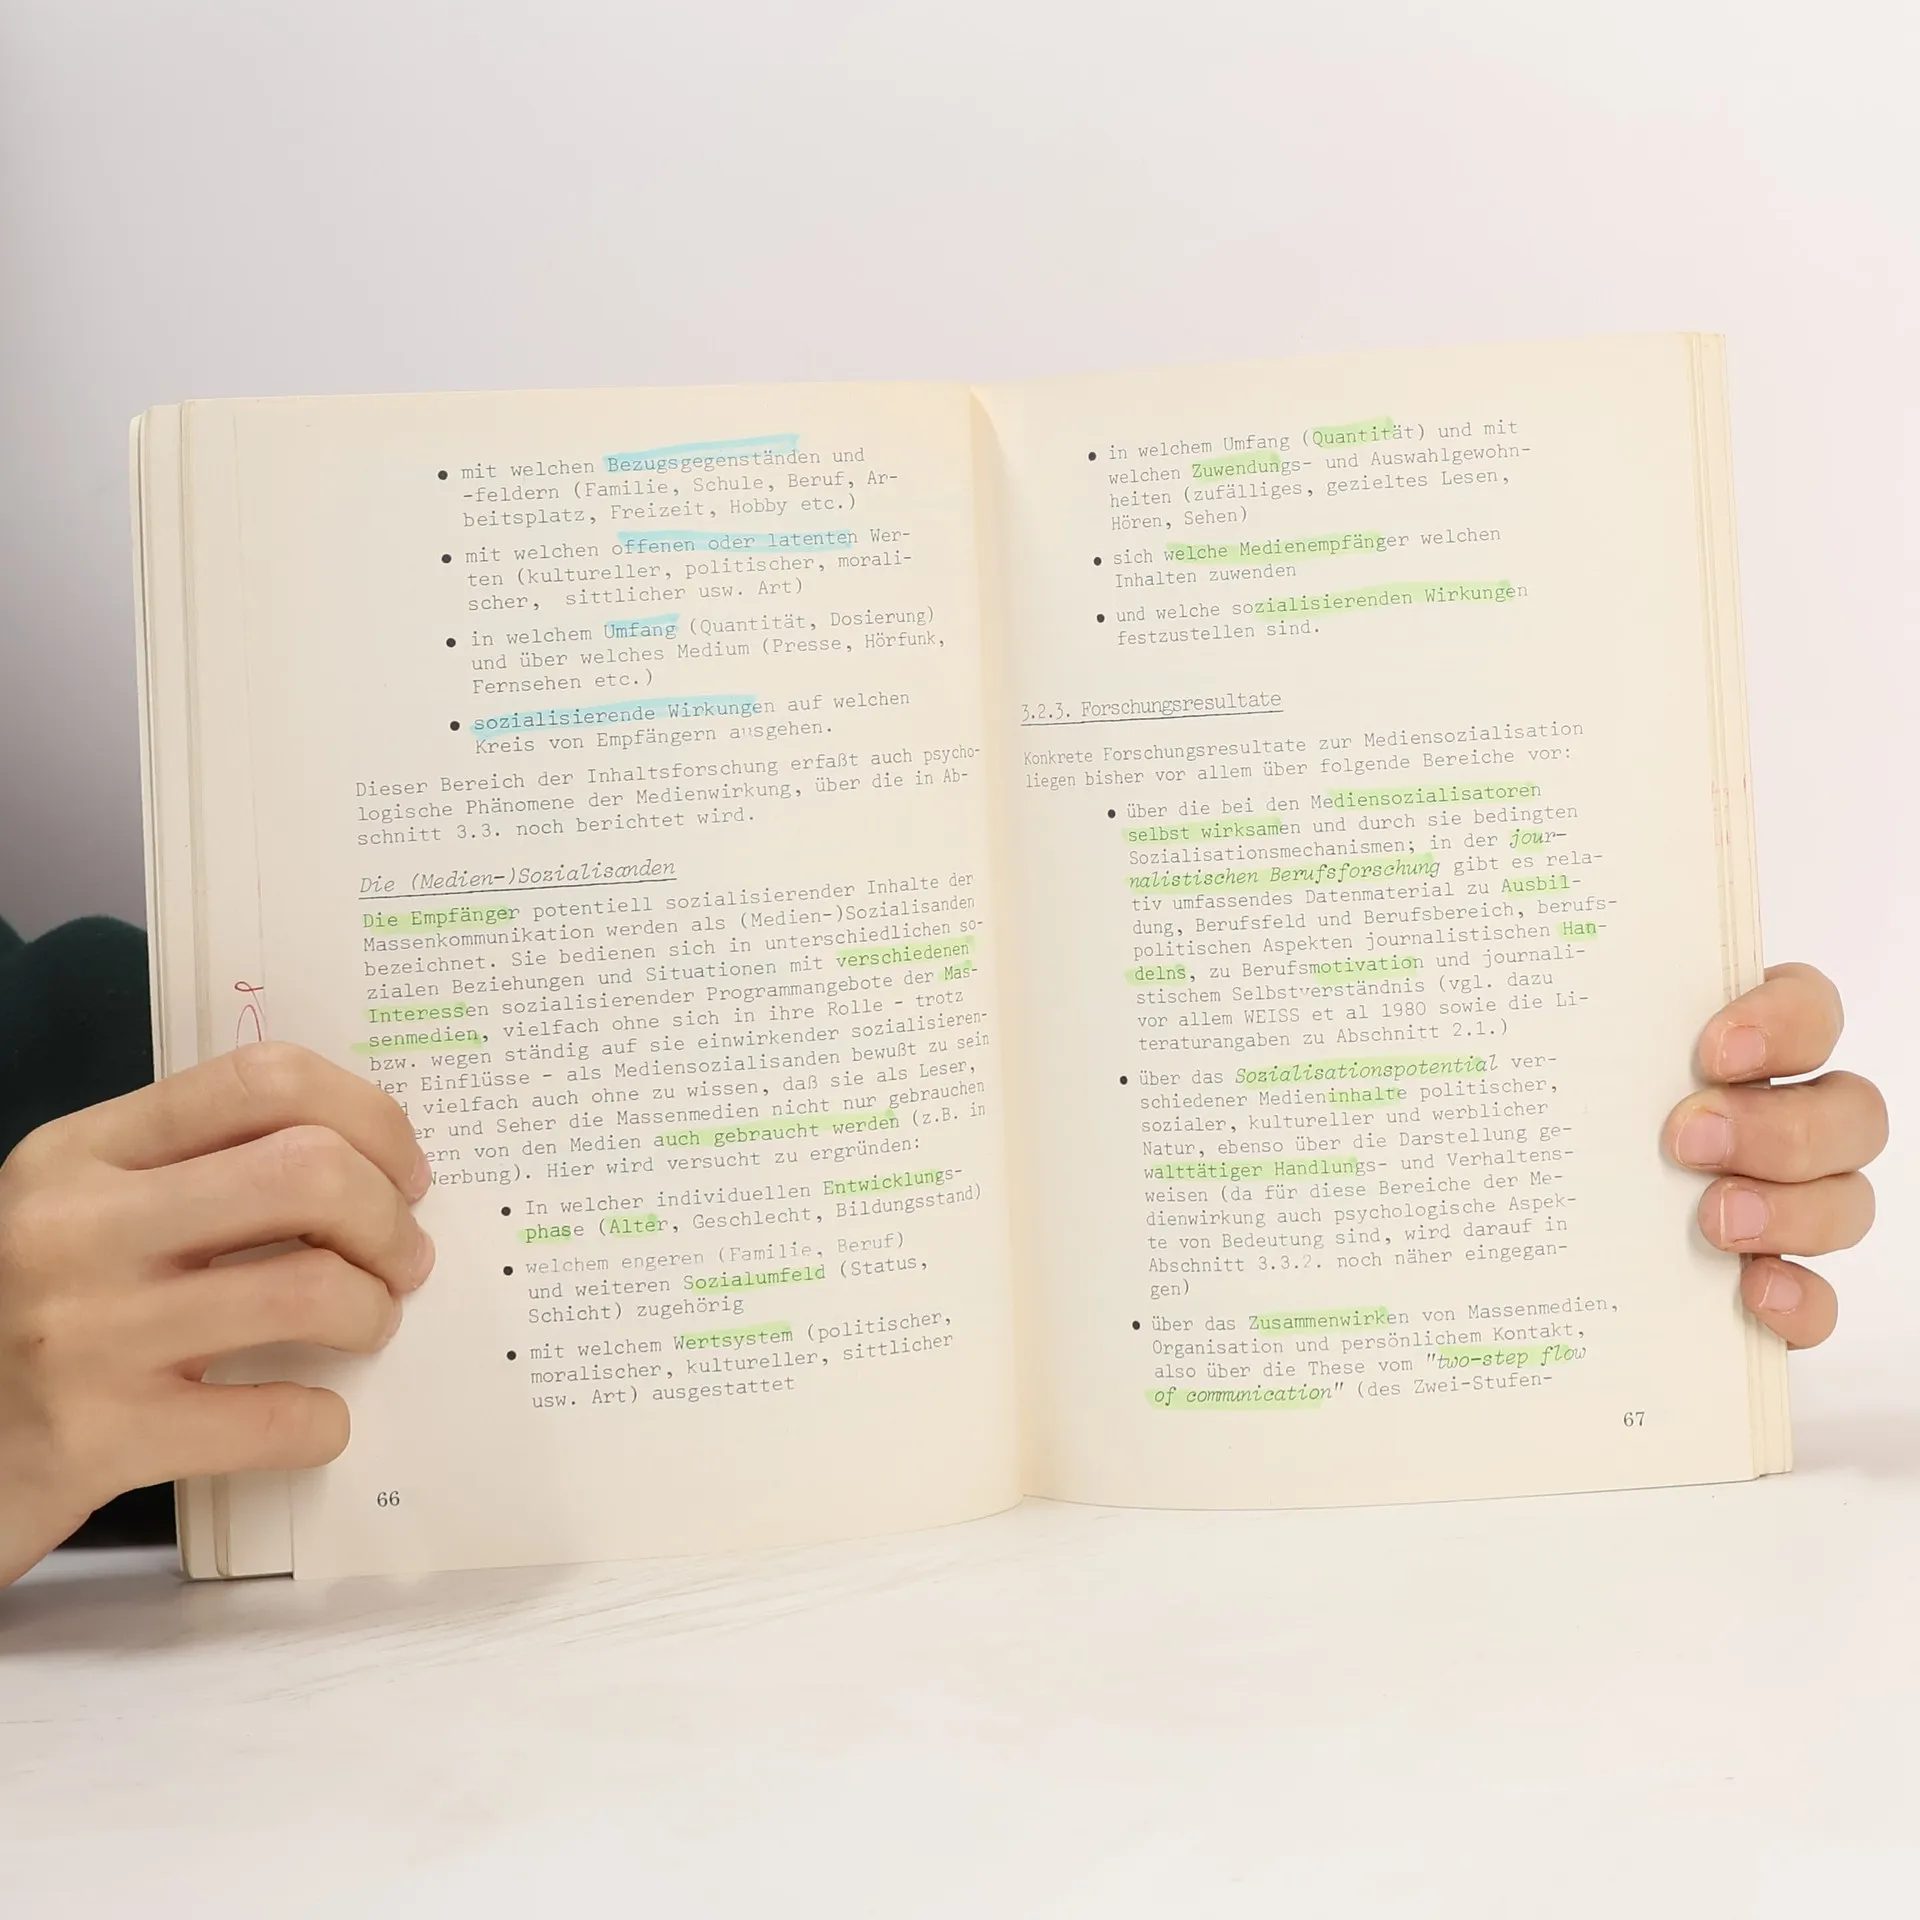 • mit welchen Bezugsgegenständen und
-feldern (Familie, Schule, Beruf, Ar-
beitsplatz, Freizeit, Hobby etc.)
• mit welchen offenen oder latenten Wer-
ten (kultureller, politischer, morali-
scher, sittlicher usw. Art)
• in welchem Umfang (Quantität, Dosierung)
und über welches Medium (Presse, Hörfunk,
Fernsehen etc.)
• sozialisierende Wirkungen auf welchen
Kreis von Empfängern ausgehen.
Dieser Bereich der Inhaltsforschung erfaßt auch psycho-
logische Phänomene der Medienwirkung, über die in Ab-
schnitt 3.3. noch berichtet wird.
Die (Medien-)Sozialisanden
Die Empfänger potentiell sozialisierender Inhalte der
Massenkommunikation werden als (Medien-)Sozialisanden
bezeichnet. Sie bedienen sich in unterschiedlichen so-
zialen Beziehungen und Situationen mit verschiedenen
Interessen sozialisierender Programmangebote der Mas-
senmedien, vielfach ohne sich in ihre Rolle - trotz
bzw. wegen ständig auf sie einwirkender sozialisieren-
der Einflüsse - als Mediensozialisanden bewußt zu sein
vielfach auch ohne zu wissen, daß sie als Leser,
und Seher die Massenmedien nicht nur gebrauchen
von den Medien auch gebraucht werden (z.B. in
Werbung). Hier wird versucht zu ergründen:
• In welcher individuellen Entwicklungs-
phase (Alter, Geschlecht, Bildungsstand)
• welchem engeren (Familie, Beruf)
und weiteren Sozialumfeld (Status,
Schicht) zugehörig
• mit welchem Wertsystem (politischer,
moralischer, kultureller, sittlicher
usw. Art) ausgestattet
66
• in welchem Umfang (Quantität) und mit
welchen Zuwendungs- und Auswahlgewohn-
heiten (zufälliges, gezieltes Lesen,
Hören, Sehen)
• sich welche Medienempfänger welchen
Inhalten zuwenden
• und welche sozialisierenden Wirkungen
festzustellen sind.
3.2.3. Forschungsresultate
Konkrete Forschungsresultate zur Mediensozialisation
liegen bisher vor allem über folgende Bereiche vor:
• über die bei den Mediensozialisatoren
selbst wirksamen und durch sie bedingten
Sozialisationsmechanismen; in der jour-
nalistischen Berufsforschung gibt es rela-
tiv umfassendes Datenmaterial zu Ausbil-
dung, Berufsfeld und Berufsbereich, berufs-
politischen Aspekten journalistischen Han-
delns, zu Berufsmotivation und journali-
stischem Selbstverständnis (vgl. dazu
vor allem WEISS et al 1980 sowie die Li-
teraturangaben zu Abschnitt 2.1.)
• über das Sozialisationspotential ver-
schiedener Medieninhalte politischer,
sozialer, kultureller und werblicher
Natur, ebenso über die Darstellung ge-
walttätiger Handlungs- und Verhaltens-
weisen (da für diese Bereiche der Me-
dienwirkung auch psychologische Aspek-
te von Bedeutung sind, wird darauf in
Abschnitt 3.3.2. noch näher eingegan-
gen)
• über das Zusammenwirken von Massenmedien,
Organisation und persönlichem Kontakt,
also über die These vom "two-step flow
of communication" (des Zwei-Stufen-
67